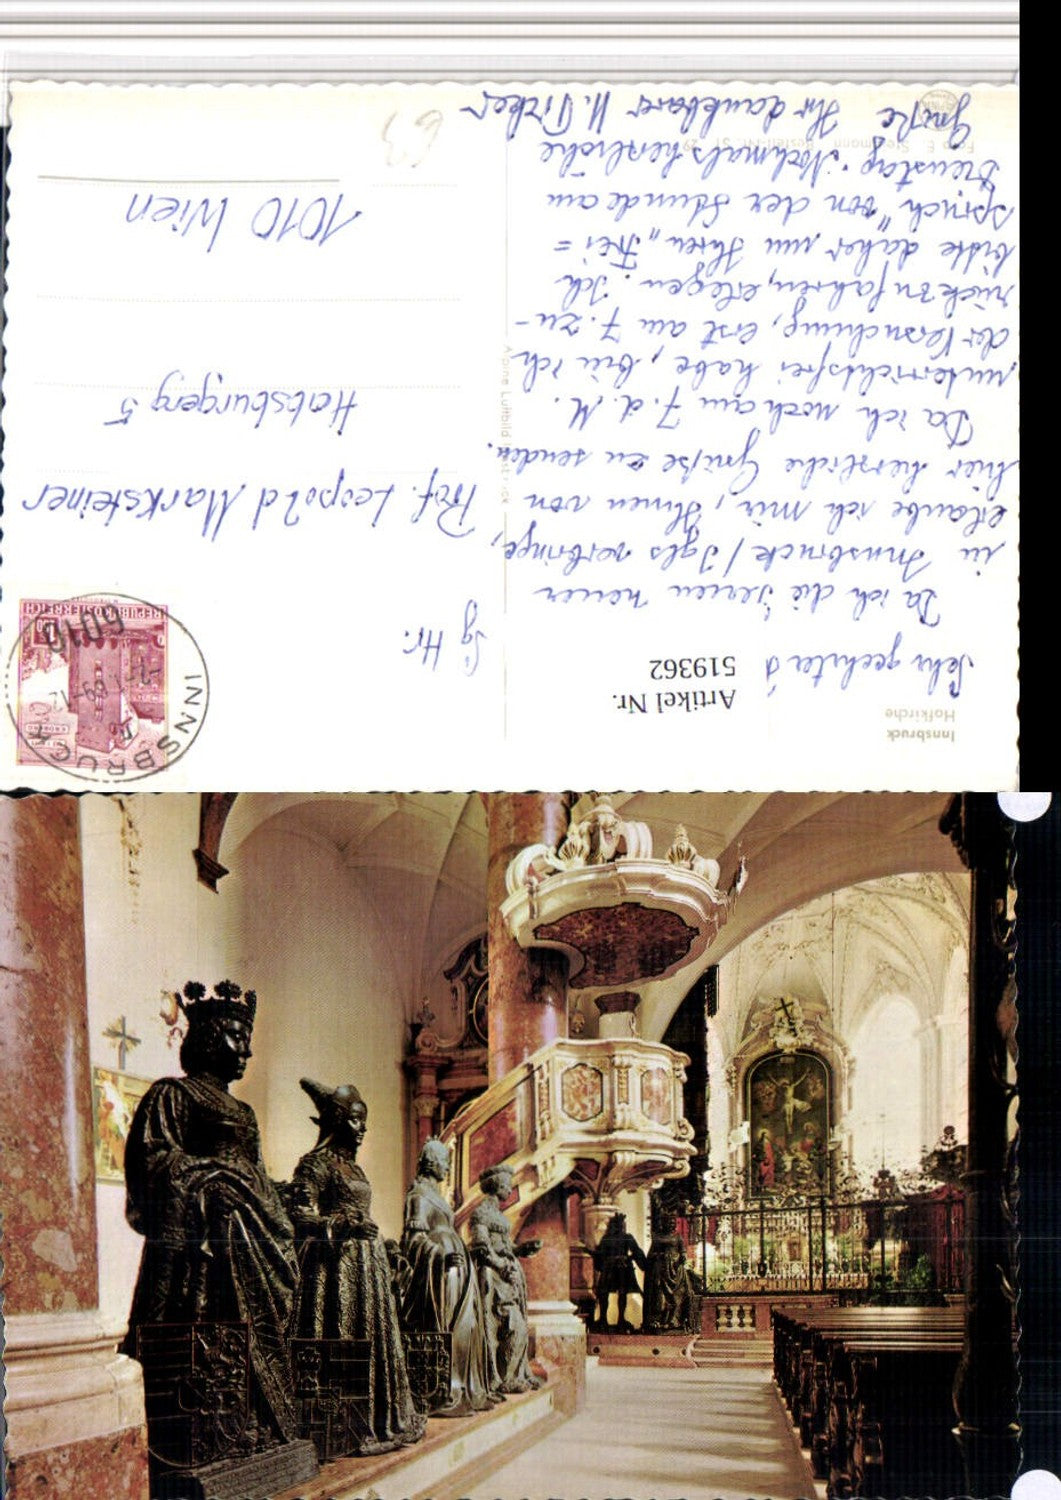 Innsbruck
Hofkirche
Artikel Nr.
519362
Sehr geehrter
Da ich die Ferien heuer
in Innsbruck / Igls verbringe,
erlaube ich mir, Ihnen von
hier herzliche Grüße zu senden.
Da ich noch am 7. d. M.
unterrichtsfrei habe, bin ich
der Versuchung, erst am 7. zu-
rückzufahren, erlegen. Ich
bitte daher um Ihren „Frei=
spruch" von der Stunde am
Dienstag. Nochmals herzliche
Grüße Ihr dankbarer
Alpine Luftbild Innsbruck
REPUBLIK ÖSTERREICH
6010
INNSBRUCK
Sg Hr.
Prof. Leopold Marksteiner
Habsburgerg 5
1010 Wien
63